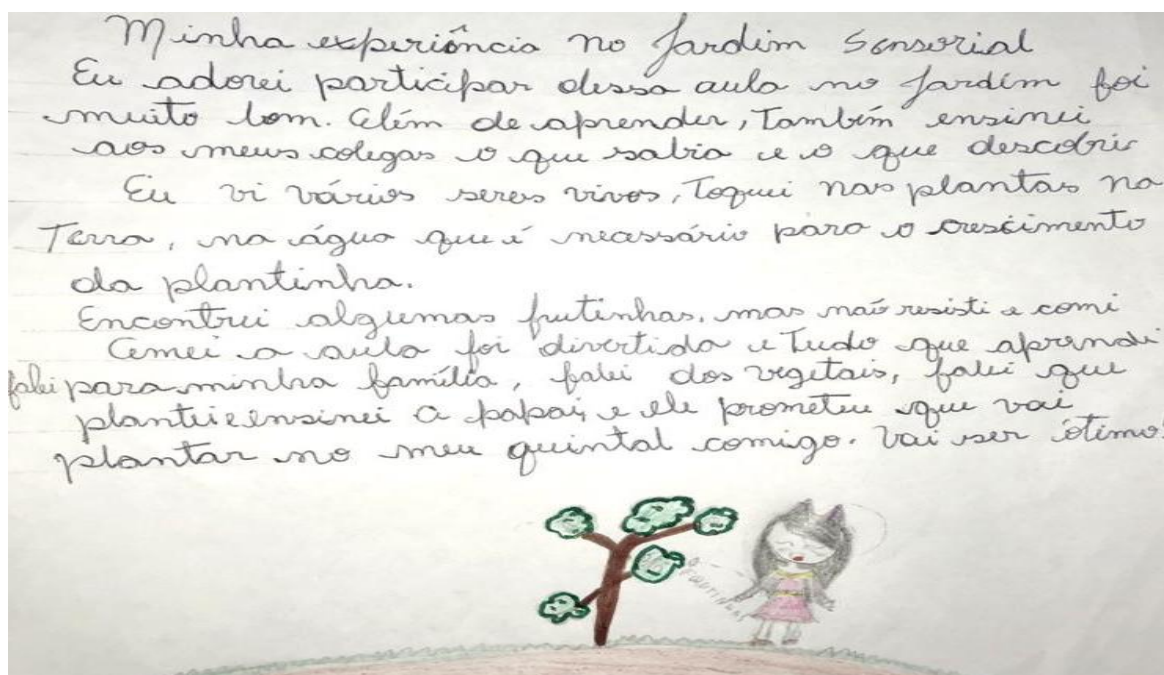 Minha experiência no Jardim Sensorial
Eu adorei participar dessa aula no Jardim foi
muito bom. Além de aprender, Também ensinei
aos meus colegas o que sabia e o que descobrir
Eu vi vários seres vivos, Toquei nas plantas na
Terra, na água que é necessário para o crescimento
da plantinha.
Encontrei algumas frutinhas, mas não resisti e comi
Amei a aula foi divertida e Tudo que aprendi
falei para minha família, falei dos vegetais, falei que
plantei e ensinei a papai, e ele prometeu que vai
plantar no meu quintal comigo. Vai ser ótimo!
FRUTINHAS